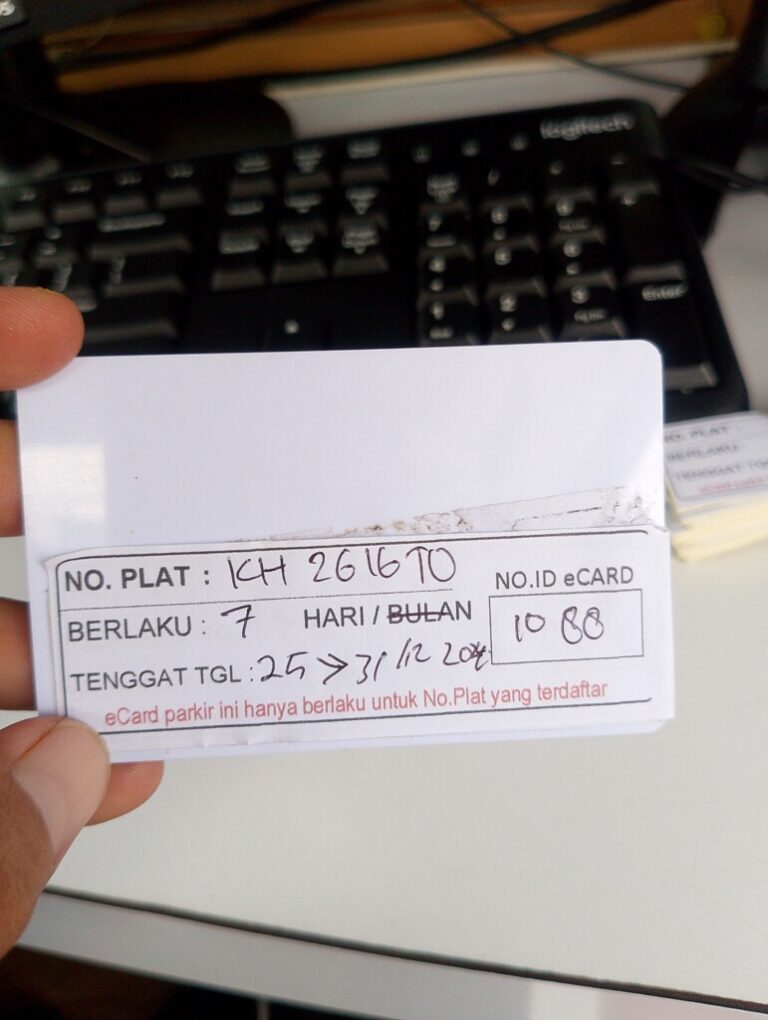 logitech
Enter
NO. PLAT :
BERLAKU :
TENGGAT TGL
NO. PLAT : KH 2616 TO
NO.ID eCARD
BERLAKU : 7 HARI / BULAN
10 88
TENGGAT TGL : 25 > 31/12
eCard parkir ini hanya berlaku untuk No.Plat yang terdaftar